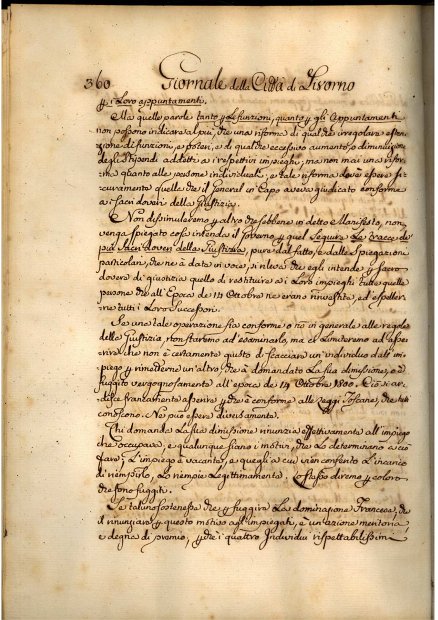 360 Giornale della Città di Livorno
p i Loro appuntamenti.
Ma quelle parole tanto p le funzioni, quanto p gli Appuntamenti
non possono indicare al più, che una riforma di qualche irregolare esten-
zione di funzioni, e poteri, e di qualche eccessivo aumento, o diminuzione
degli stipendi addetti a i respettivi impieghi; ma non mai una rifor-
ma quanto alle persone individuali; e tale riforma dovea essere si-
curamente quella che il General in Capo aveva giudicato conforme
a i sacri doveri della Giustizia.
Non dissimuleremo p altro che sebbene in detto Manifesto, non
venga spiegato cosa intenda il Governo p quel Seguire Le tracce de
più sacri doveri della Giustizia, pure dal fatto, e dalle Spiegazioni
particolari, che ne à date in voce, si rileva che egli intende p Sacro
dovere di giustizia quello di restituire a i Loro impieghi tutte quelle
persone che all'Epoca de 14 Ottobre ne erano rivestite, ed espeller-
ne tutti i Loro Successori.
Se una tale operazione sia conforme o nò in generale alle regole
della Giustizia, non staremo ad esaminarlo, ma ci limiteremo ad asse-
rire che non è certamente giusto di scacciare un'individuo dall'im-
piego p rimetterne un'altro, che à domandato La sua dimissione, o è
fuggito vergognosamente all'epoca de 14 Ottobre 1800. Ciò si ar-
disce francamente asserire p che è conforme alle Leggi Toscane, che tutti
conoscono. Nè può essere diversamente.
Chi domanda La sua dimissione rinunzia effettivamente all'impiego
che occupava, e qualunque siano i motivi, che Lo determinano a ciò
fare, L'impiego è vacante, e quegli a cui vien conferito L'incarico
di riempirlo, Lo riempie Legittimamente. Lo stesso diremo p coloro
che sono fuggiti.
Se taluno sostenesse che p fuggire La dominazione Francese, che
il rinunziare p questo motivo agl'impieghi, è un'azione meritoria
e degna di premio, p che i quattro Individui rispettabilissimi